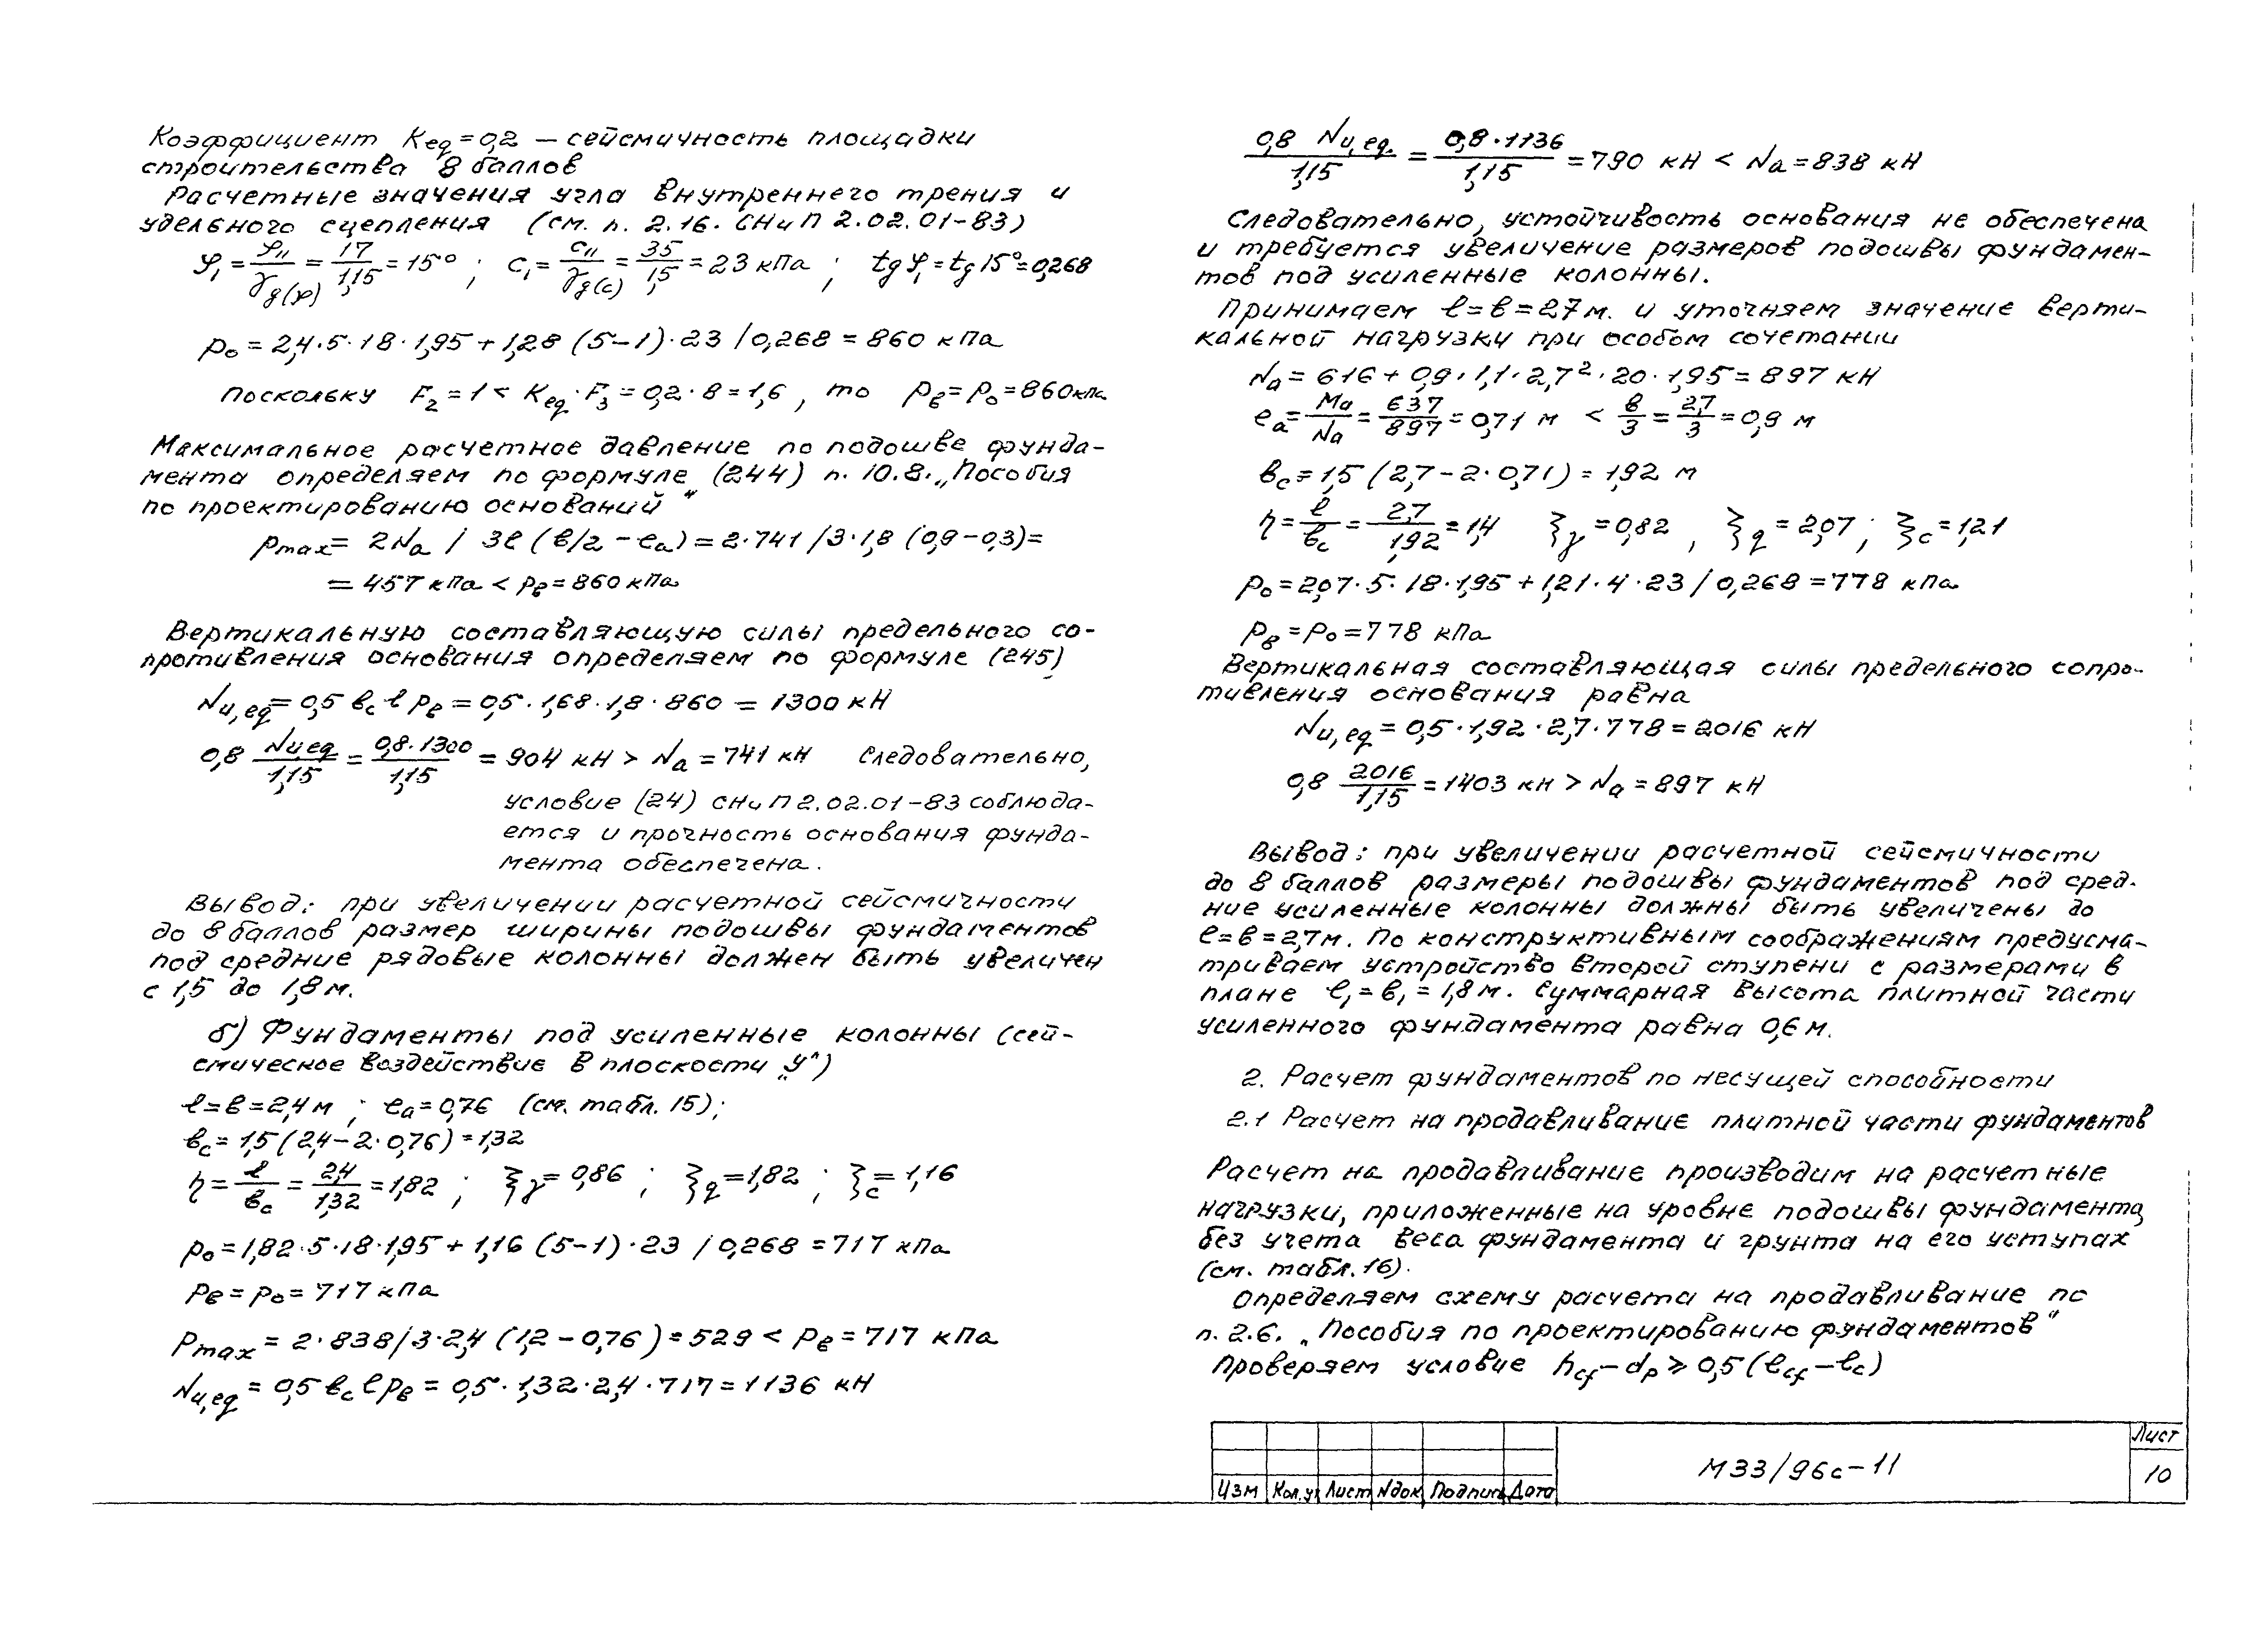 Коэффициент Keq = 0,2 — сейсмичность площадки
строительства 8 баллов
Расчетные значения угла внутреннего трения и
удельного сцепления (см. п. 2.16. СНиП 2.02.01-83)
φ₁ = φ₁₁/γg(φ) = 17/1,15 = 15° ; c₁ = c₁₁/γg(c) = 35/1,5 = 23 кПа ; tg φ₁ = tg 15° = 0,268
p₀ = 2,4·5·18·1,95 + 1,28 (5-1)·23 /0,268 = 860 кПа
поскольку F₂ = 1 < Keq·F₃ = 0,2·8 = 1,6 , то pв = p₀ = 860 кПа
Максимальное расчетное давление по подошве фунда-
мента определяем по формуле (244) п. 10.8. „Пособия
по проектированию оснований"
pmax = 2Na / 3ℓ (в/2 - ea) = 2·741 /3·1,8 (0,9-0,3) =
= 457 кПа < pв = 860 кПа
Вертикальную составляющую силы предельного со-
противления основания определяем по формуле (245)
Nu,eq = 0,5 вc ℓ pв = 0,5·1,68·1,8·860 = 1300 кН
0,8 Nu,eq/1,15 = 0,8·1300/1,15 = 904 кН > Na = 741 кН Следовательно,
условие (24) СНиП 2.02.01-83 соблюда-
ется и прочность основания фунда-
мента обеспечена.
Вывод: при увеличении расчетной сейсмичности
до 8 баллов размер ширины подошвы фундаментов
под средние рядовые колонны должен быть увеличен
с 1,5 до 1,8 м.
б) Фундаменты под усиленные колонны (сей-
смическое воздействие в плоскости „У")
ℓ = в = 2,4 м ; ea = 0,76 (см. табл. 15);
вc = 1,5 (2,4 - 2·0,76) = 1,32
η = ℓ/вc = 2,4/1,32 = 1,82 ; ξγ = 0,86 ; ξq = 1,82 ; ξc = 1,16
p₀ = 1,82·5·18·1,95 + 1,16 (5-1)·23 / 0,268 = 717 кПа
pв = p₀ = 717 кПа
Pmax = 2·838/3·2,4 (1,2 - 0,76) = 529 < pв = 717 кПа
Nu,eq = 0,5 вc ℓ pв = 0,5·1,32·2,4·717 = 1136 кН
0,8 Nu,eq./1,15 = 0,8·1136/1,15 = 790 кН < Na = 838 кН
Следовательно, устойчивость основания не обеспечена
и требуется увеличение размеров подошвы фундамен-
тов под усиленные колонны.
Принимаем ℓ = в = 2,7 м. и уточняем значение верти-
кальной нагрузки при особом сочетании
Na = 616 + 0,9·1,1·2,7²·20·1,95 = 897 кН
ea = Ma/Na = 637/897 = 0,71 м < в/3 = 2,7/3 = 0,9 м
вc = 1,5 (2,7 - 2·0,71) = 1,92 м
η = ℓ/вc = 2,7/1,92 = 1,4 ξγ = 0,82 , ξq = 2,07 ; ξc = 1,21
p₀ = 2,07·5·18·1,95 + 1,21·4·23 / 0,268 = 778 кПа
pв = p₀ = 778 кПа
Вертикальная составляющая силы предельного сопро-
тивления основания равна
Nu,eq = 0,5·1,92·2,7·778 = 2016 кН
0,8 2016/1,15 = 1403 кН > Na = 897 кН
Вывод: при увеличении расчетной сейсмичности
до 8 баллов размеры подошвы фундаментов под сред-
ние усиленные колонны должны быть увеличены до
ℓ = в = 2,7 м. По конструктивным соображениям предусма-
триваем устройство второй ступени с размерами в
плане ℓ₁ = в₁ = 1,8 м. Суммарная высота плитной части
усиленного фундамента равна 0,6 м.
2. Расчет фундаментов по несущей способности
2.1 Расчет на продавливание плитной части фундаментов
Расчет на продавливание производим на расчетные
нагрузки, приложенные на уровне подошвы фундамента
без учета веса фундамента и грунта на его уступах
(см. табл. 16).
Определяем схему расчета на продавливание по
п. 2.6. „Пособия по проектированию фундаментов"
Проверяем условие hcf - dp ⩾ 0,5 (ℓcf - ℓc)
Изм Кол.уч Лист Nдок Подпись Дата
М33/96с-11
Лист
10